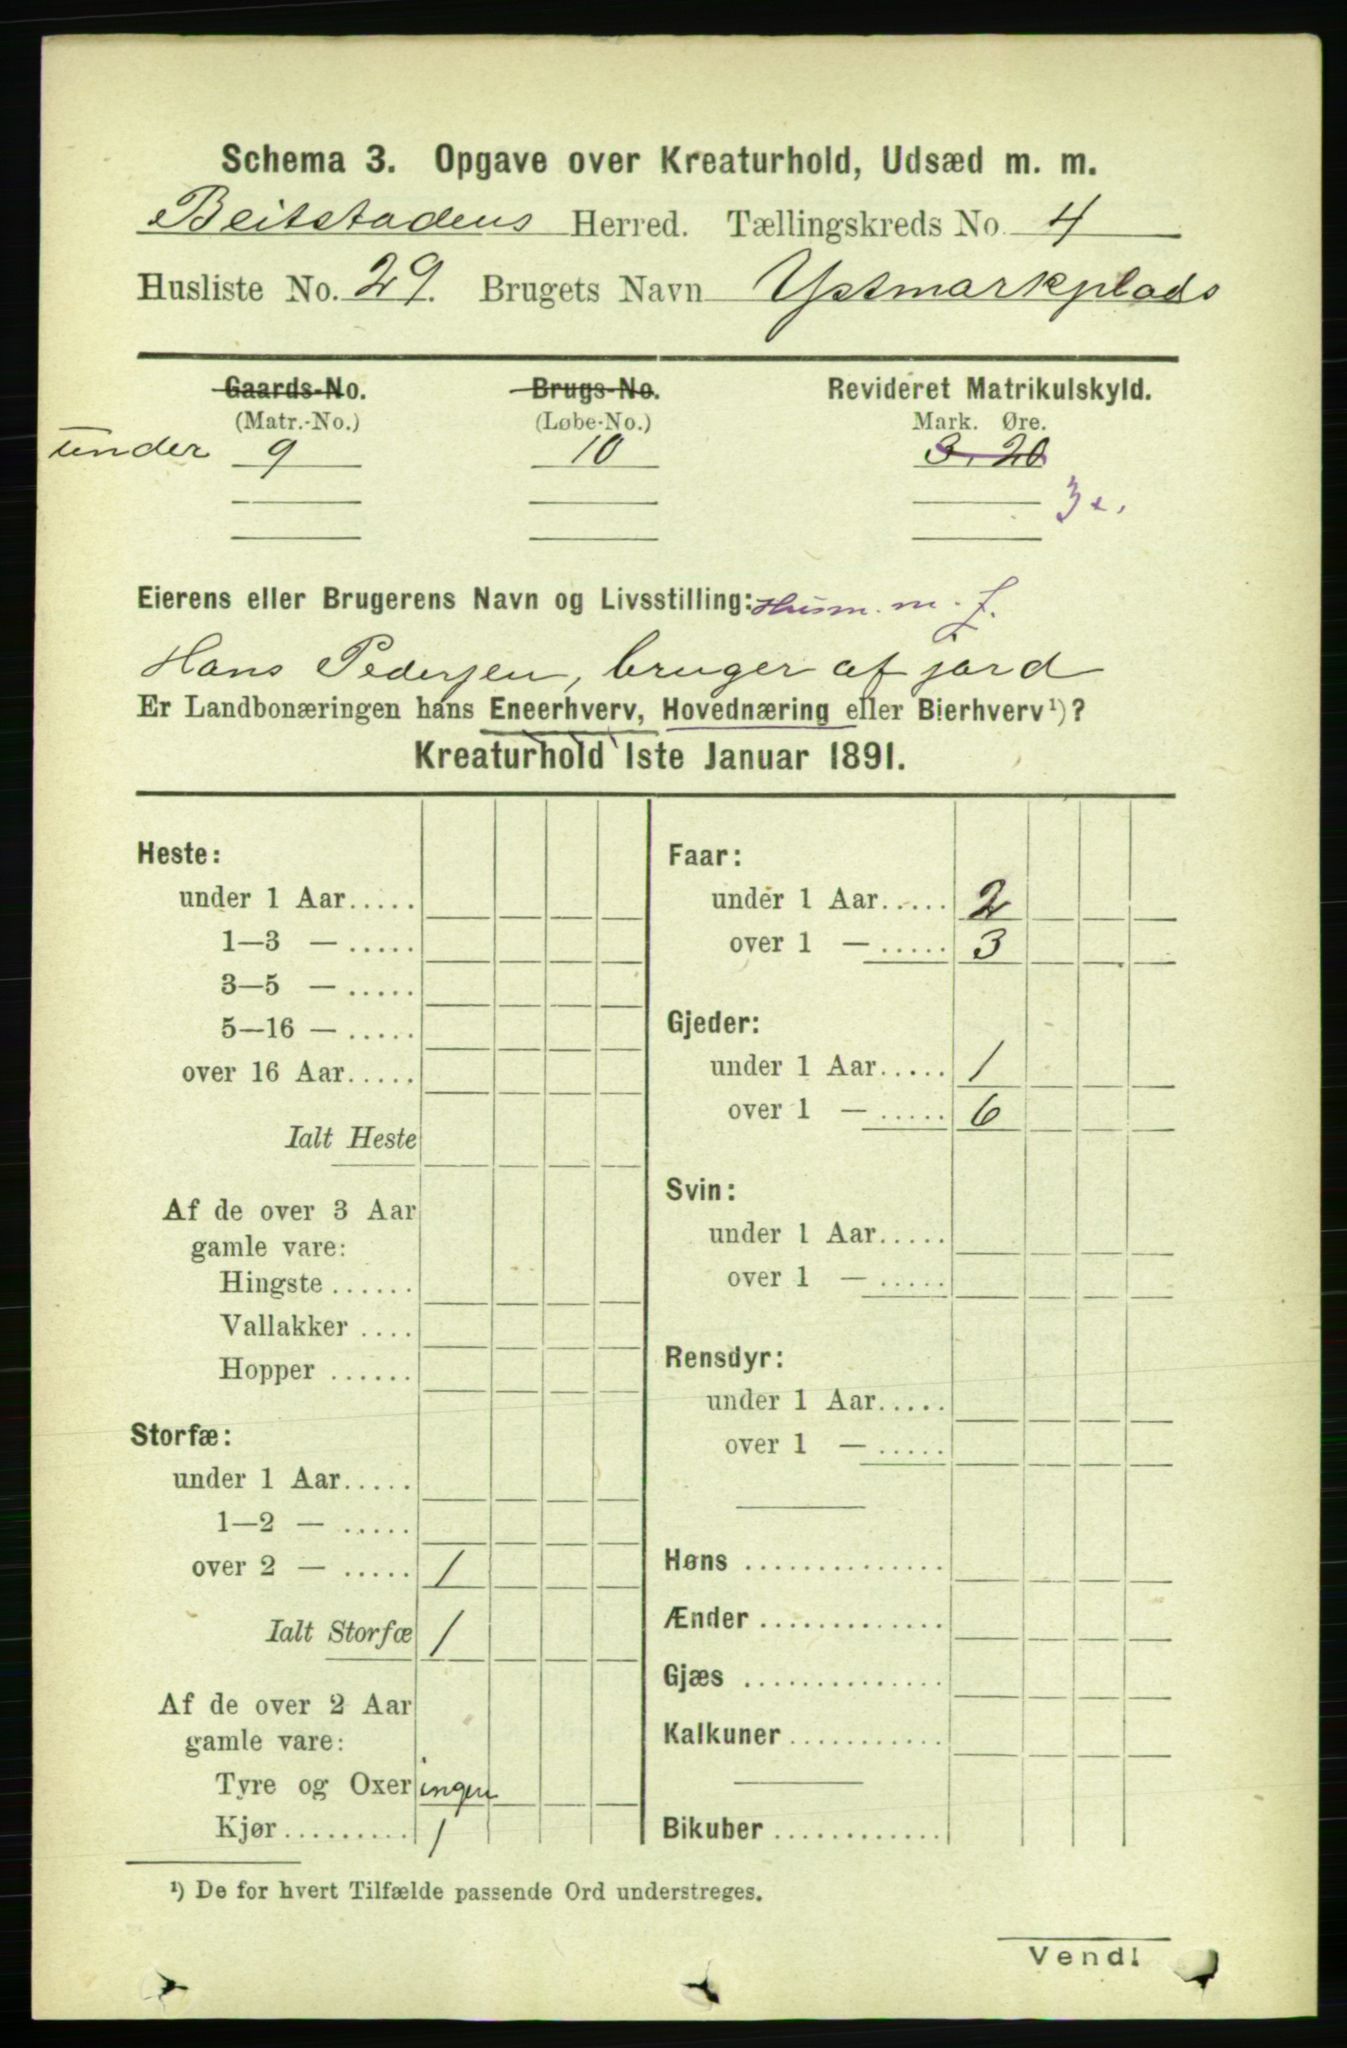 Schema 3. Opgave over Kreaturhold, Udsæd m. m.
Beitstadens Herred. Tællingskreds No. 4
Husliste No. 29. Brugets Navn Ystmarkplads
Gaards-No. Brugs-No. Revideret Matrikulskyld.
(Matr.-No.) (Løbe-No.) Mark. Øre.
under 9 10 3. 20
Eierens eller Brugerens Navn og Livsstilling: Husm. m. j.
Hans Pedersen, bruger af jord
Er Landbonæringen hans Eneerhverv, Hovednæring eller Bierhverv¹)?
Kreaturhold 1ste Januar 1891.
Heste:
under 1 Aar.....
1—3 — .....
3—5 — .....
5—16 — .....
over 16 Aar.....
Ialt Heste
Af de over 3 Aar
gamle vare:
Hingste ......
Vallakker ....
Hopper ......
Storfæ:
under 1 Aar.....
1—2 — .....
over 2 — ..... 1
Ialt Storfæ 1
Af de over 2 Aar
gamle vare:
Tyre og Oxer ingen
Kjør ......... 1
Faar:
under 1 Aar..... 2
over 1 — ..... 3
Gjeder:
under 1 Aar..... 1
over 1 — ..... 6
Svin:
under 1 Aar.....
over 1 — .....
Rensdyr:
under 1 Aar.....
over 1 — .....
Høns ..............
Ænder .............
Gjæs ..............
Kalkuner ...........
Bikuber ............
¹) De for hvert Tilfælde passende Ord understreges.
Vend!